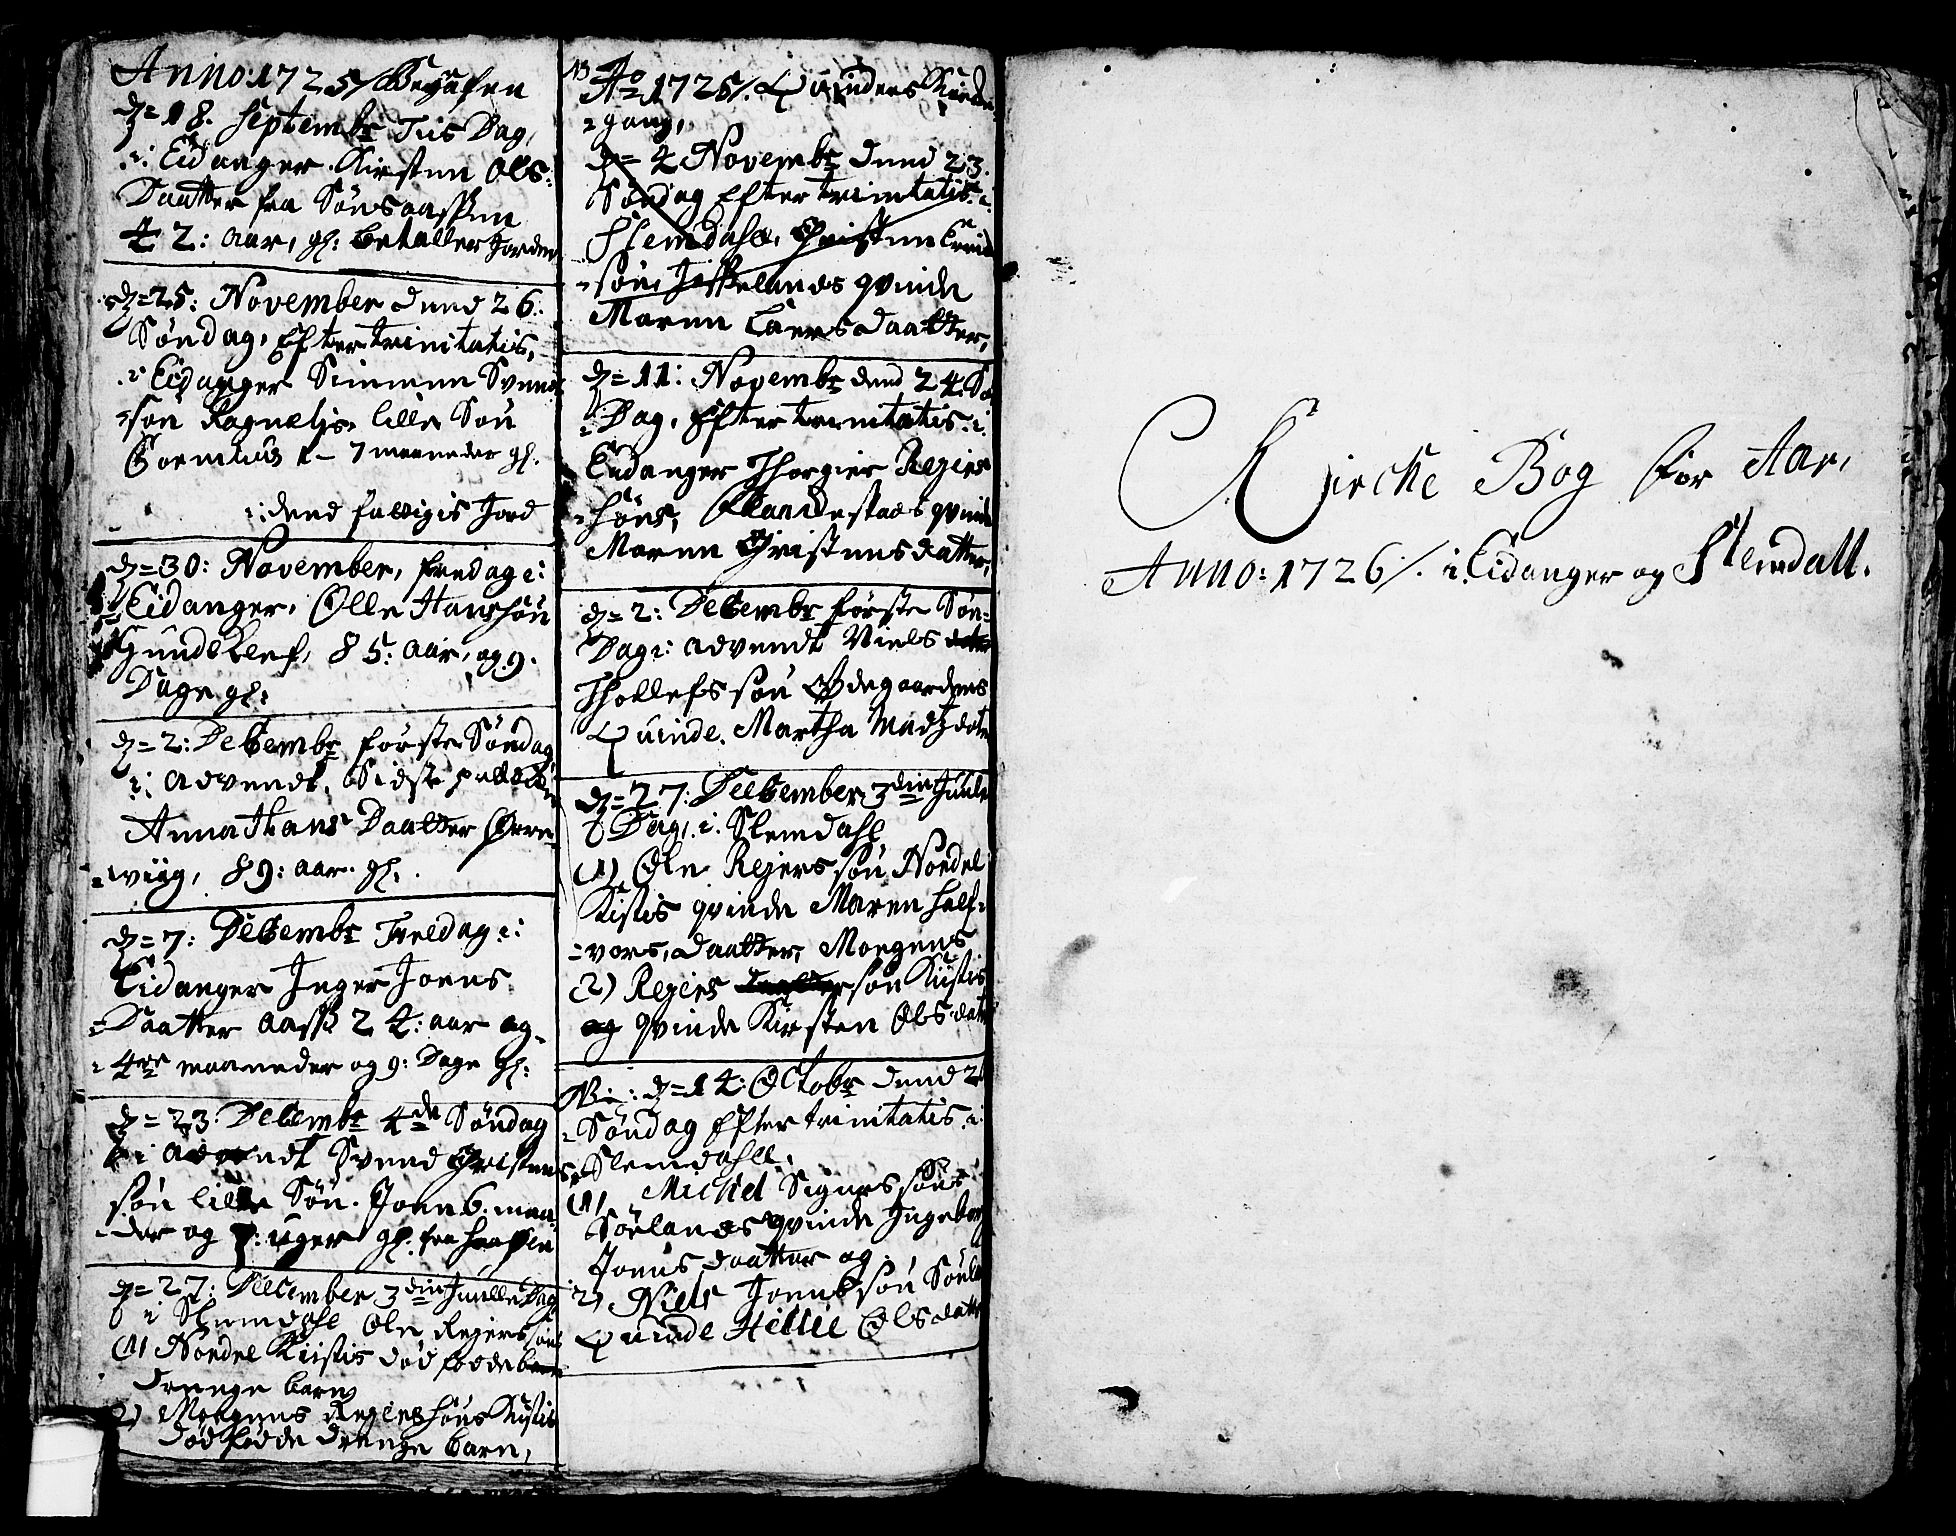 Anno: 1725/ Begrafen
d= 18. Septembr Tiis Dag,
i: Eidanger Kirsten Ols:
Daatter fra Sønsaassen
42: aar, gl: betaller Jorden
d= 25: November dend 26:
Søndag, Efter trinitatis,
i Eidanger Simmen Svend
søn Ragnelis lille Søn
7 maaneder gl.
i: dend fattigis Jord
d= 30: November, fredag i:
Eidanger, Olle Hansøn
Gundeklef, 85: aar, og 9.
Dage gl:
d= 2: Decembr første Søndag
i: advendt, Sidst
Anna Hans Daatter Ørre
=wiig, 89: aar. gl:
d= 7: Decembr Fredag i:
Eidanger Inger Joens
=Daatter aass 24: aar og
4re maaneder og 9: Dage gl:
d= 23: Decembr 4de Søndag
i advendt Svend Christens
søn lille Søn. Joen 6. maa
=der og 7: uger gl. fra
d= 27: December 3die Juulle Dag
i Slemdahl Ole Rejers søns
(1) Nordel Kiistis død fødde
drenge barn
2) Morgens Rejers søns Kistis
død fødde drenge barn,
13
Ao 1725/. Quinders Kircke
=gang,
d= 4 Novembr dend 23.
Søndag Efter trinitatis i
Slemdahl, Christen
=søn Jesselands qvinde
Maren Laers daatter,
d= 11: Novembr dend 24 Sø
=Dag, Efter trinitatis i:
Eidanger Thorgier Rejers
=søns, qvinde
Maren Christens datter,
d= 2: Decembr første Søn=
Dag i: advendt Niels
Thollefs søn Ødegaardens
Quinde. Martha Madz datr
d= 27: December 3die Juule
Dag, i: Slemdahl
(1) Ole Rejers søn Nordel
Kistis qvinde Maren half=
=vors, daatter, Morgens
2) Rejers søn Kiistis
og qvinde Kirsten Ols datr
d= 14: Octobr dend 2
=Søndag Efter trinitatis i:
Slemdahll.
(1) Michel Signes søns
Sørlands qvinde Ingebor
Joens daatter og
2) Niels Joens søn
Quinde Hellie Ols datr
Kircke Bog for Aar,
Anno: 1726/. i Eidanger og Slemdall.